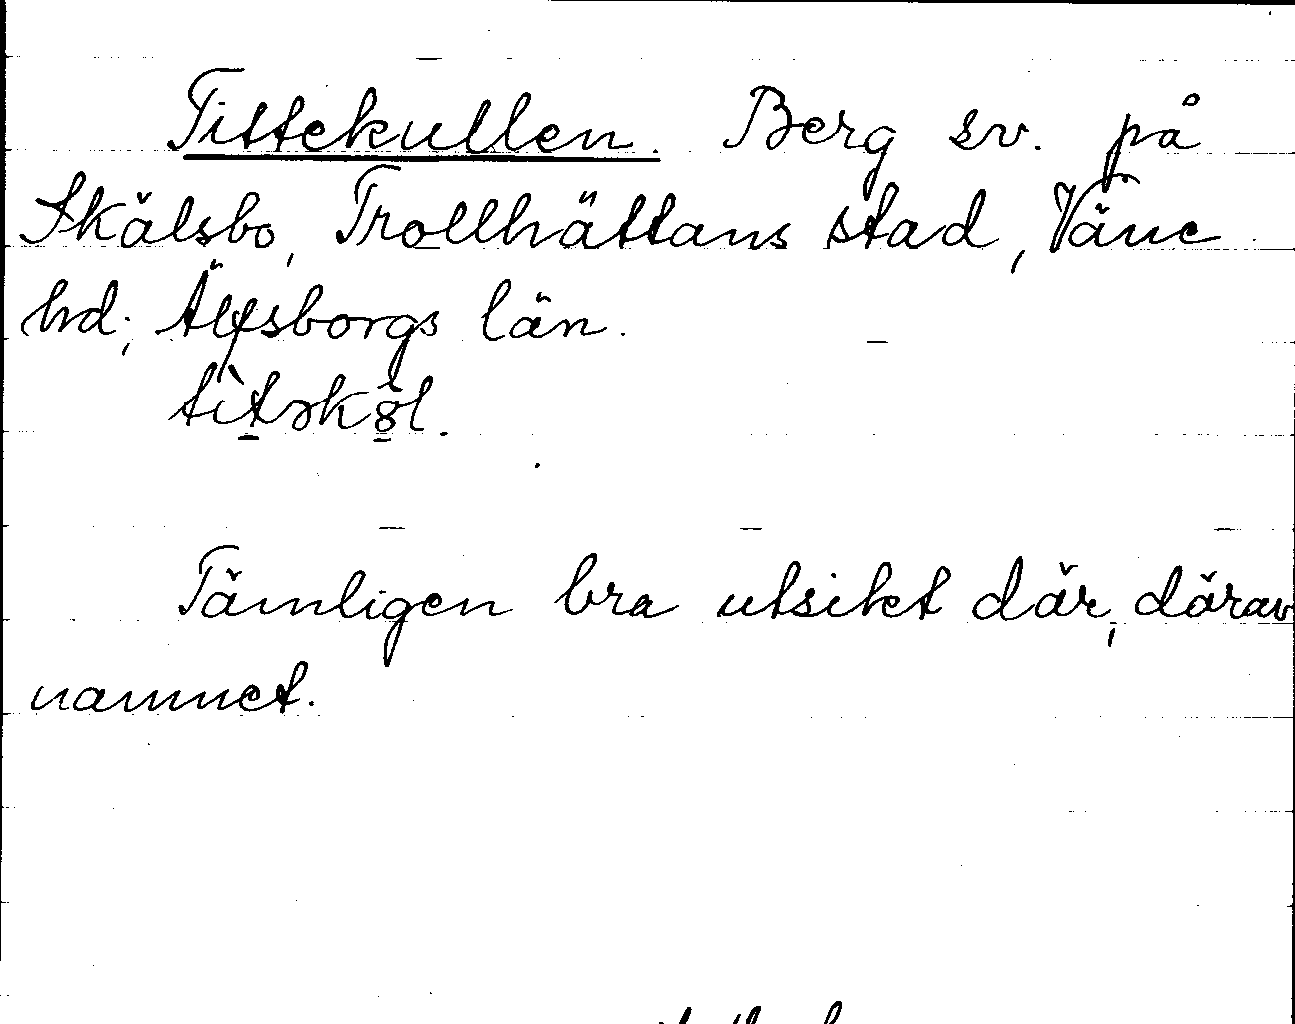 Tittekullen. Berg sv. på
Skälsbo, Trollhättans stad, Väne
hd; Älfsborgs län.
Tämligen bra utsikt där, därav
namnet.